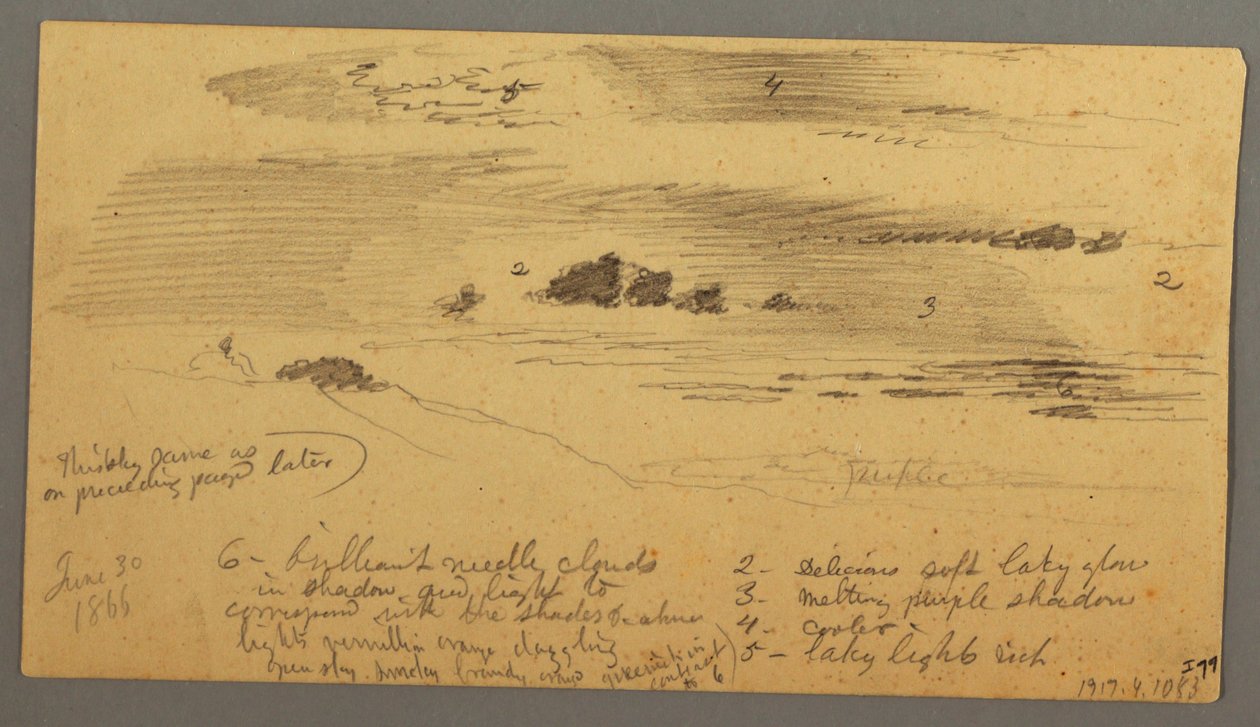 5
4
2
3
2
6
purple
This sky same as
on preceeding page later
June 30
1866
6 - brilliant needle clouds
in shadow and light to
correspond with the shades &
lights vermillion orange dazzling
open sky smokey
contrast
to 6
2 - Delicious soft laky glow
3 - melting purple shadow
4 - cooler
5 - laky lights rich
I 79
1917.4.1083